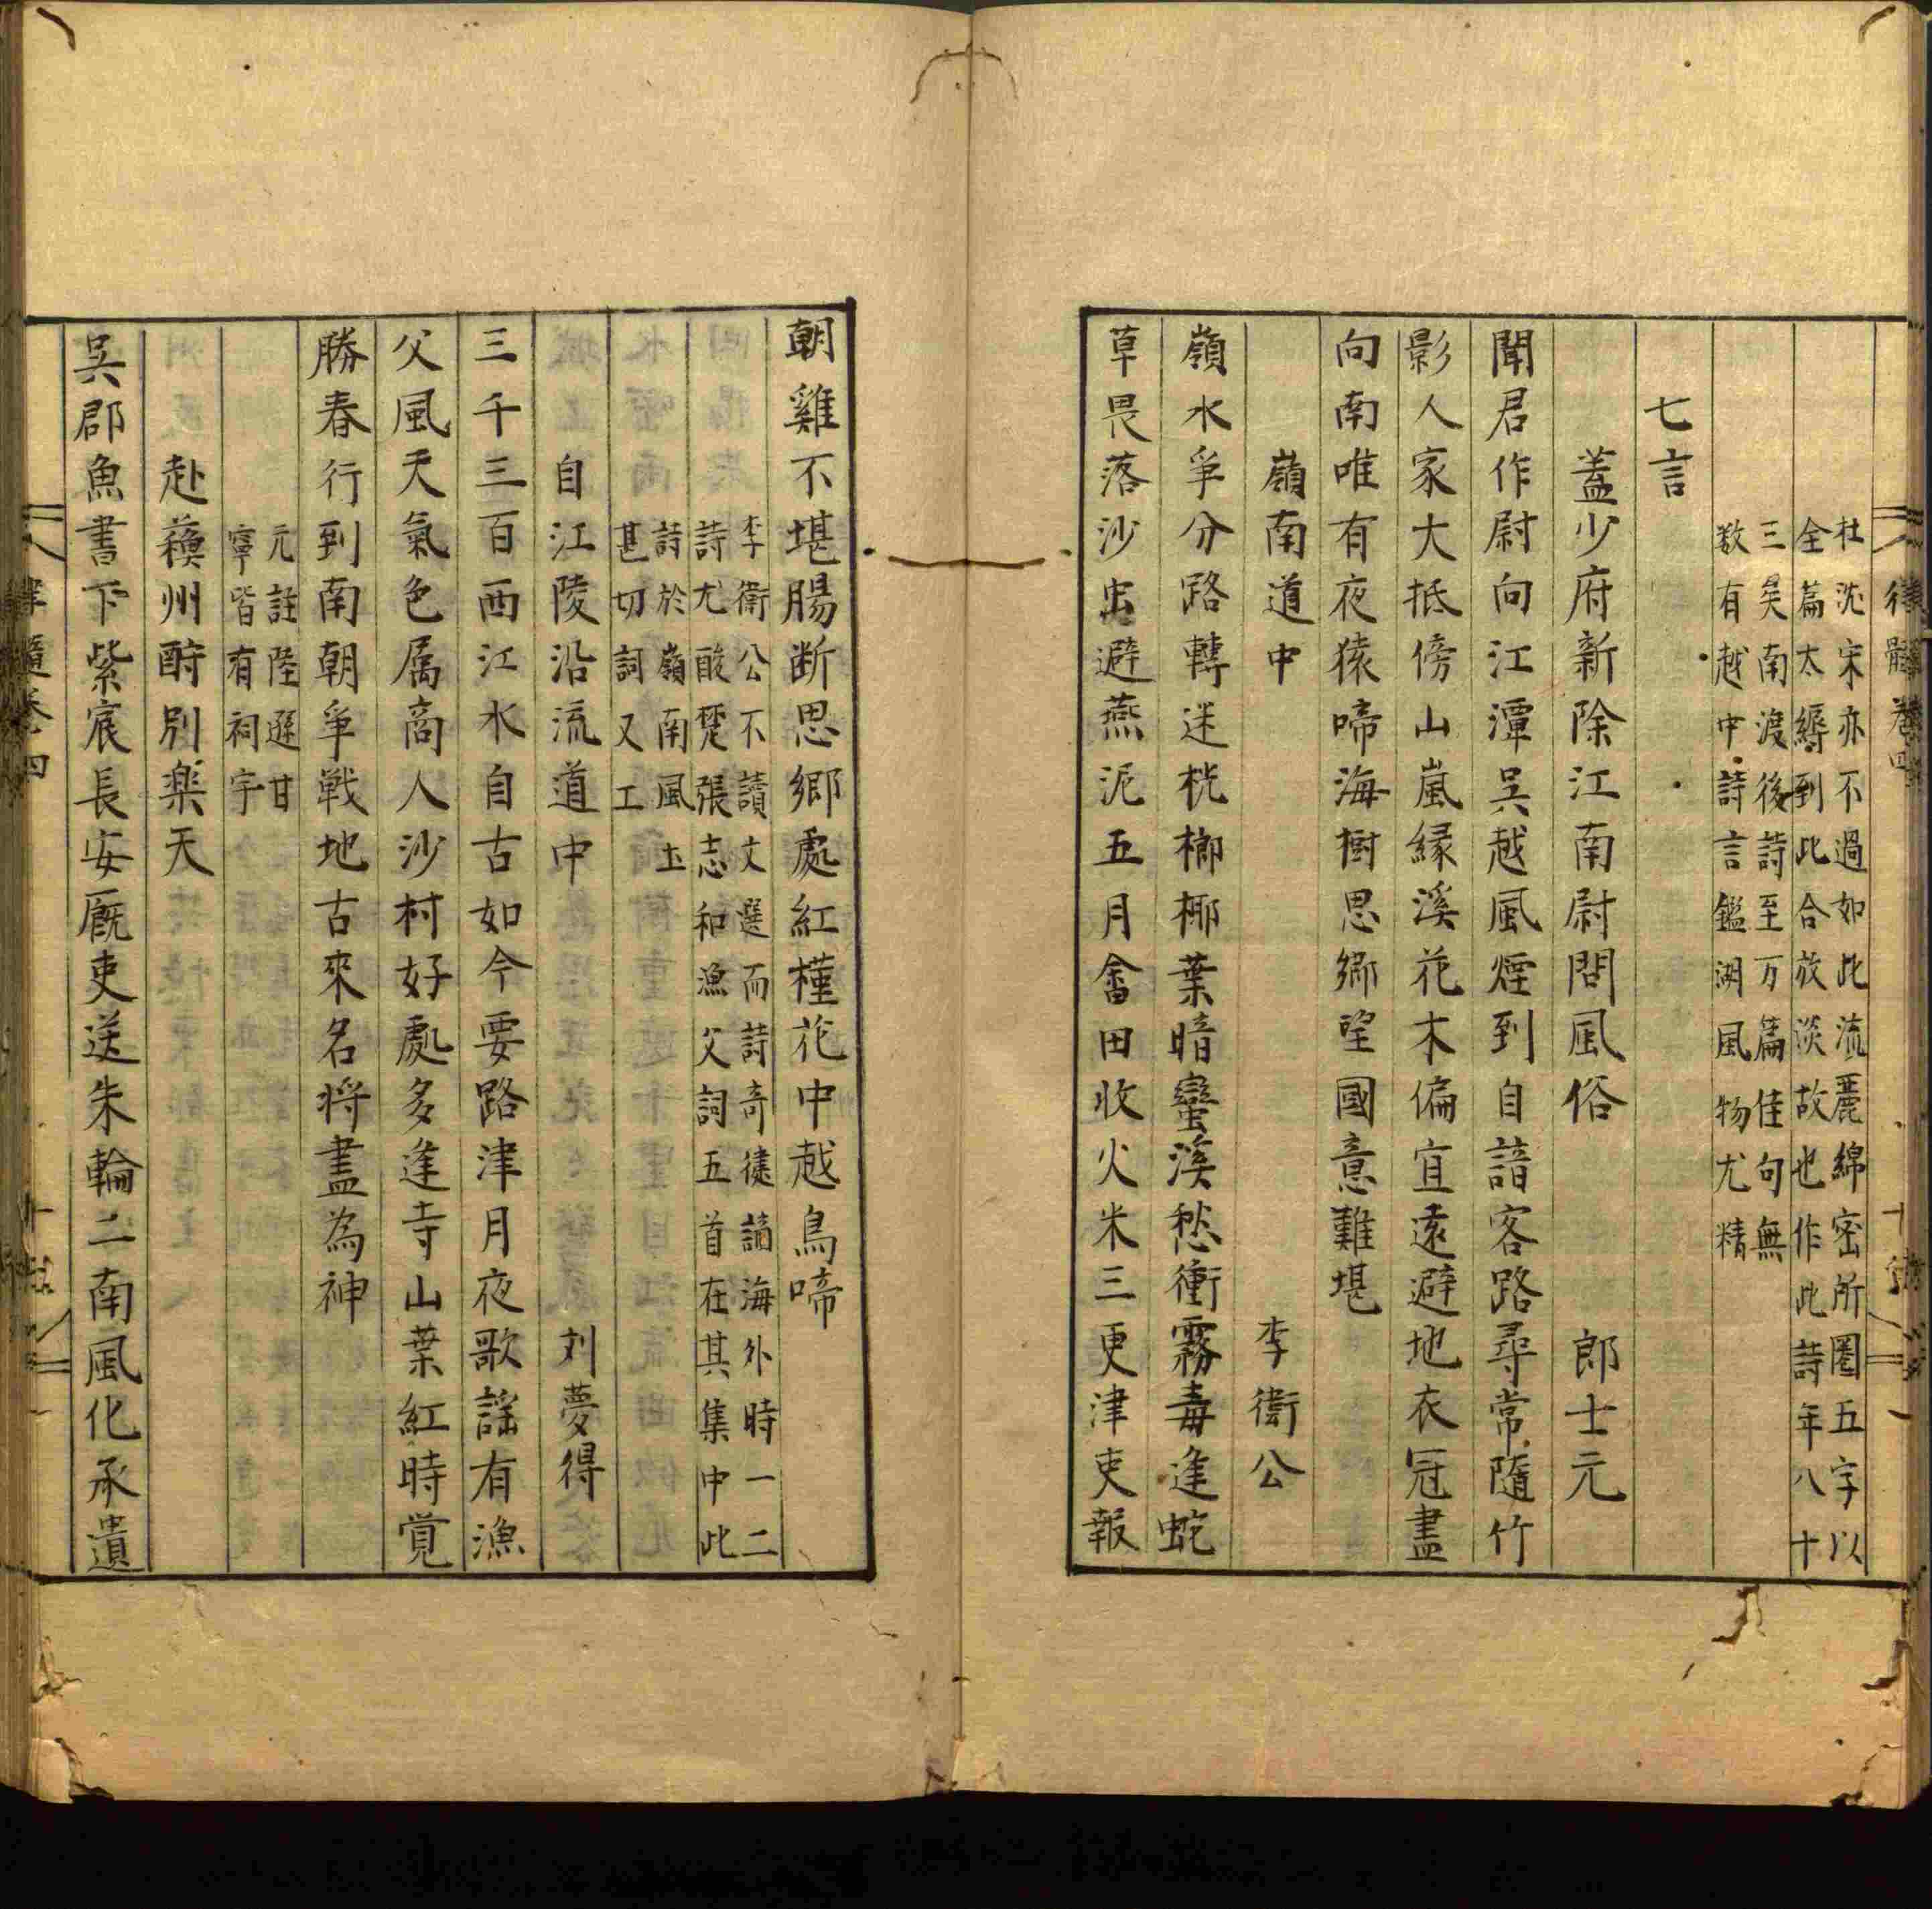 杜沈宋亦不過如此流麗綿密所圏五字以
全篇太縟到此合放淡故也作此詩年八十
三矣南渡後詩至万篇佳句無
数有越中詩言鑑湖風物尤精
七言
蓋少府新除江南尉問風俗 郎士元
聞君作尉向江潭吳越風煙到自諳客路尋常隨竹
影人家大抵傍山嵐緣溪花木偏宜遠避地衣冠盡
向南唯有夜猿啼海樹思鄉望國意難堪
嶺南道中 李衛公
嶺水爭分路轉迷桄榔椰葉暗蠻溪愁衝霧毒逢蛇
草畏落沙虫避燕泥五月畬田收火米三更津吏報
朝雞不堪腸断思鄉處紅槿花中越鳥啼
李衛公不讀文選而詩奇健謫海外時一二
詩尤酸楚張志和漁父詞五首在其集中此
詩於嶺南風土
甚切詞又工
自江陵沿流道中 刘夢得
三千三百西江水自古如今要路津月夜歌謠有漁
父風天氣色属商人沙村好處多逢寺山葉紅時覚
勝春行到南朝爭戦地古來名将盡為神
元註陸遜甘
寧皆有祠宇
赴蘓州酧別楽天
吳郡魚書下紫宸長安厩吏送朱輪二南風化承遺
律髓卷四